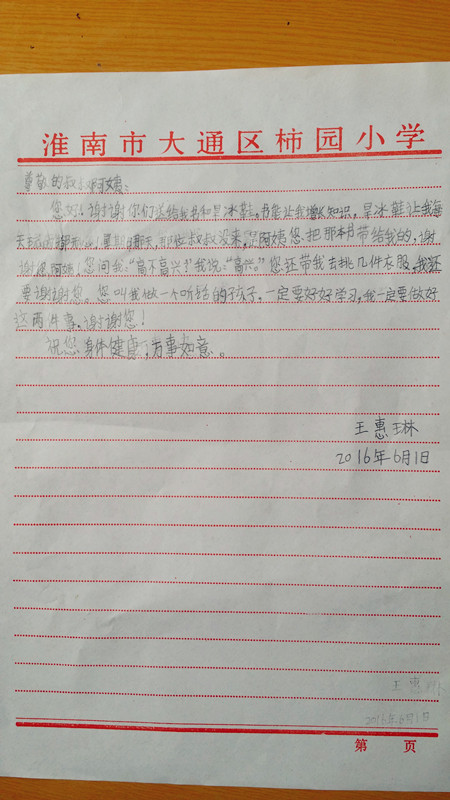 淮南市大通区柿园小学
尊敬的叔叔阿姨：
您好！谢谢你们送给我书和旱冰鞋，书能让我增长知识，旱冰鞋让我每
天星期那天，那些叔叔没来，只阿姨您把那本书带给我的，谢
谢您，阿姨！您问我：“高不高兴？”我说：“高兴。”您还带我去挑几件衣服，我还
要谢谢您。您叫我做一个听话的孩子，一定要好好学习，我一定要做好
这两件事，谢谢您！
祝您身体健康，万事如意。
王惠琳
2016年6月1日
王惠琳
2016年6月1日
第 页